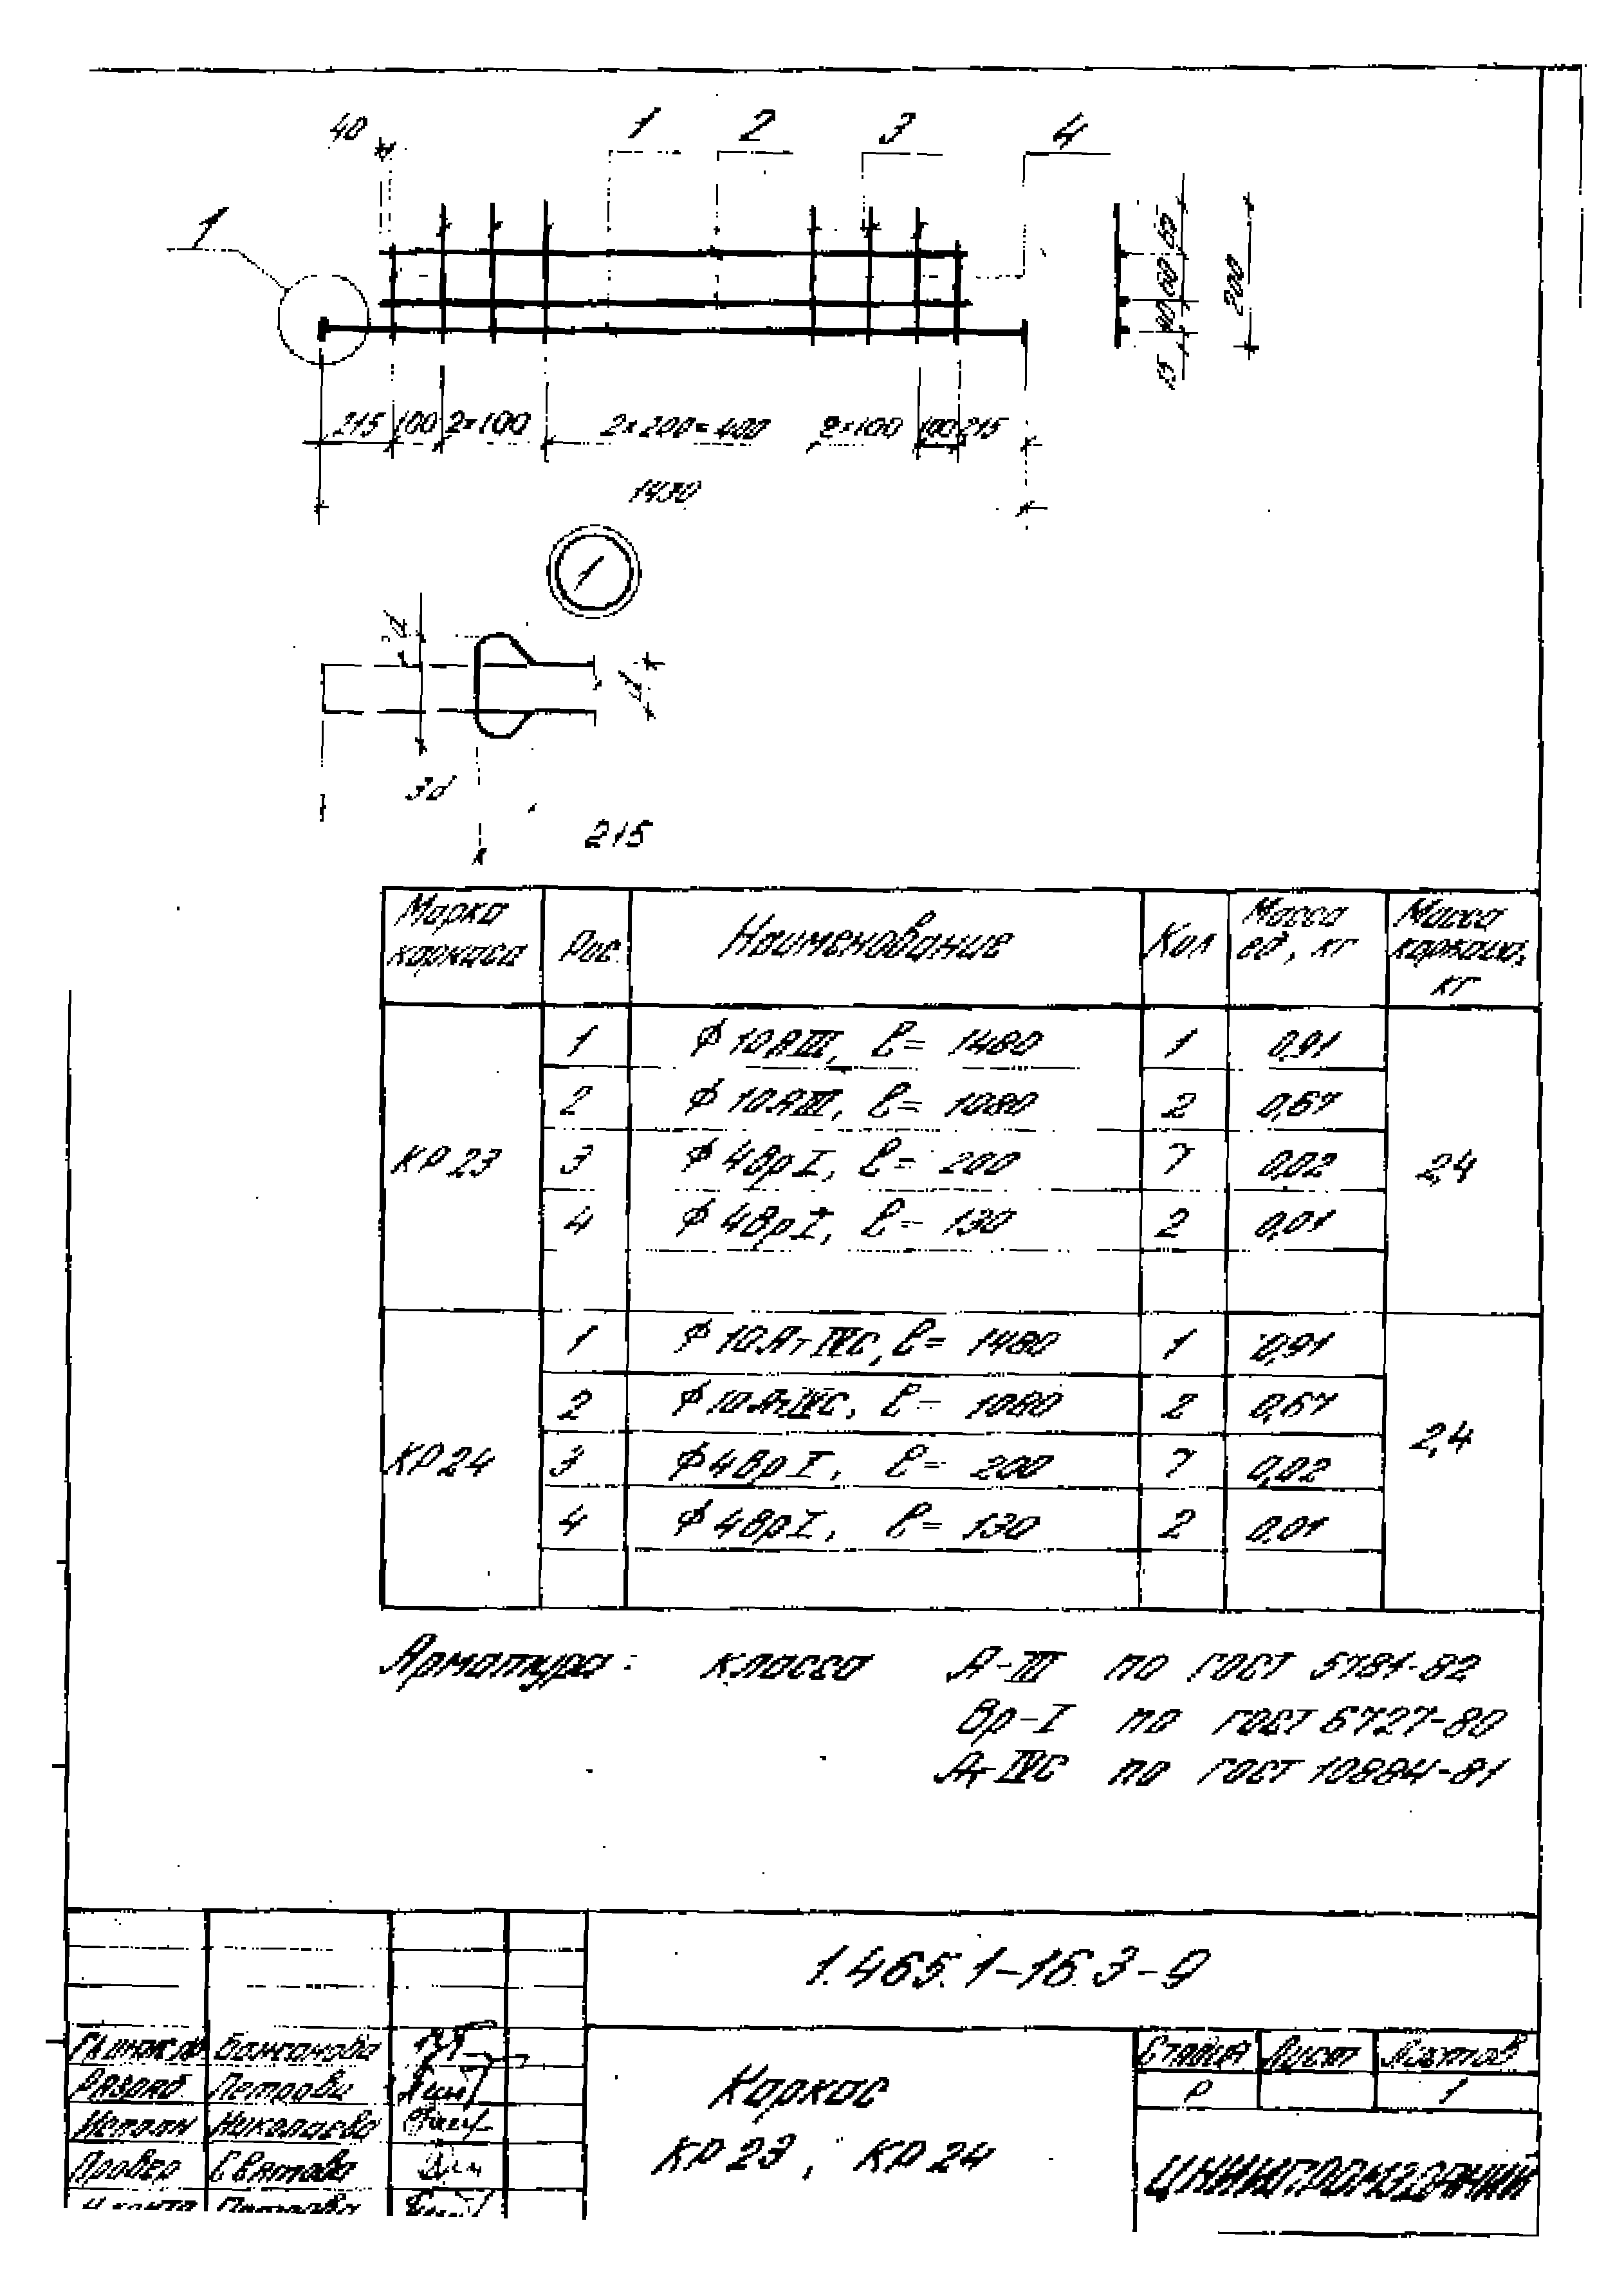 40
1 2 3 4
1
55
60
40
15
200
215 100 2×100 2×200=400 2×100 100 215
1430
1
2d
d
3d
215
Марка каркаса Поз. Наименование Кол Масса ед, кг Масса каркаса, кг
КР23
1 ϕ10АIII, ℓ= 1480 1 0,91
2 ϕ10АIII, ℓ= 1080 2 0,67
3 ϕ4ВрI, ℓ= 200 7 0,02
4 ϕ4ВрI, ℓ= 130 2 0,01
2,4
КР24
1 ϕ10АтIVС, ℓ= 1480 1 0,91
2 ϕ10АтIVС, ℓ= 1080 2 0,67
3 ϕ4ВрI, ℓ= 200 7 0,02
4 ϕ4ВрI, ℓ= 130 2 0,01
2,4
Арматура: класса А-III по ГОСТ 5781-82
Вр-I по ГОСТ 6727-80
Ат-IVС по ГОСТ 10884-81
1.465.1-16.3-9
Разраб. Петрова
Исполн Николаева
Провер Святова
Н.контр Петрова
Каркас
КР23, КР24
Стадия Лист Листов
Р 1
ЦНИИПРОМЗДАНИЙ